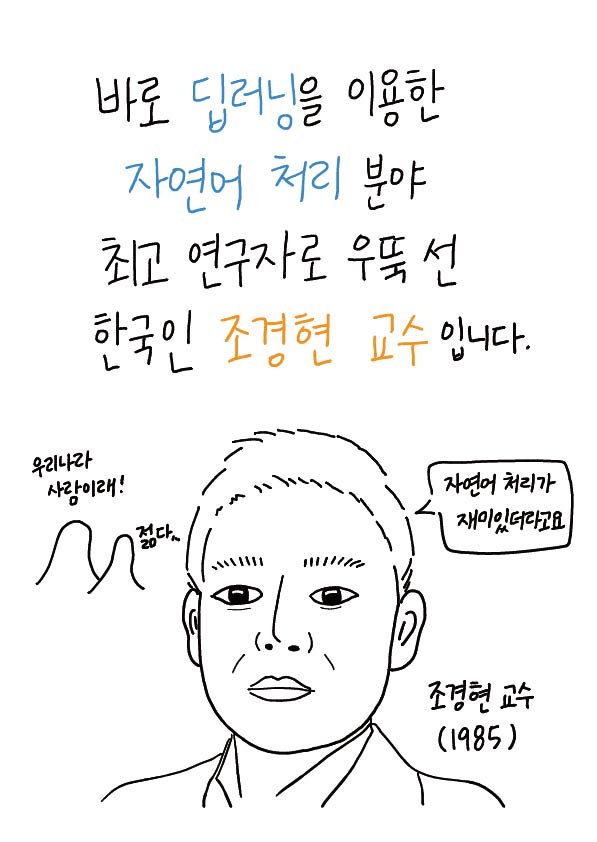 바로 딥러닝을 이용한
자연어 처리 분야
최고 연구자로 우뚝 선
한국인 조경현 교수입니다.
우리나라
사람이래!
젊다..
자연어 처리가
재미있더라고요
조경현 교수
(1985)